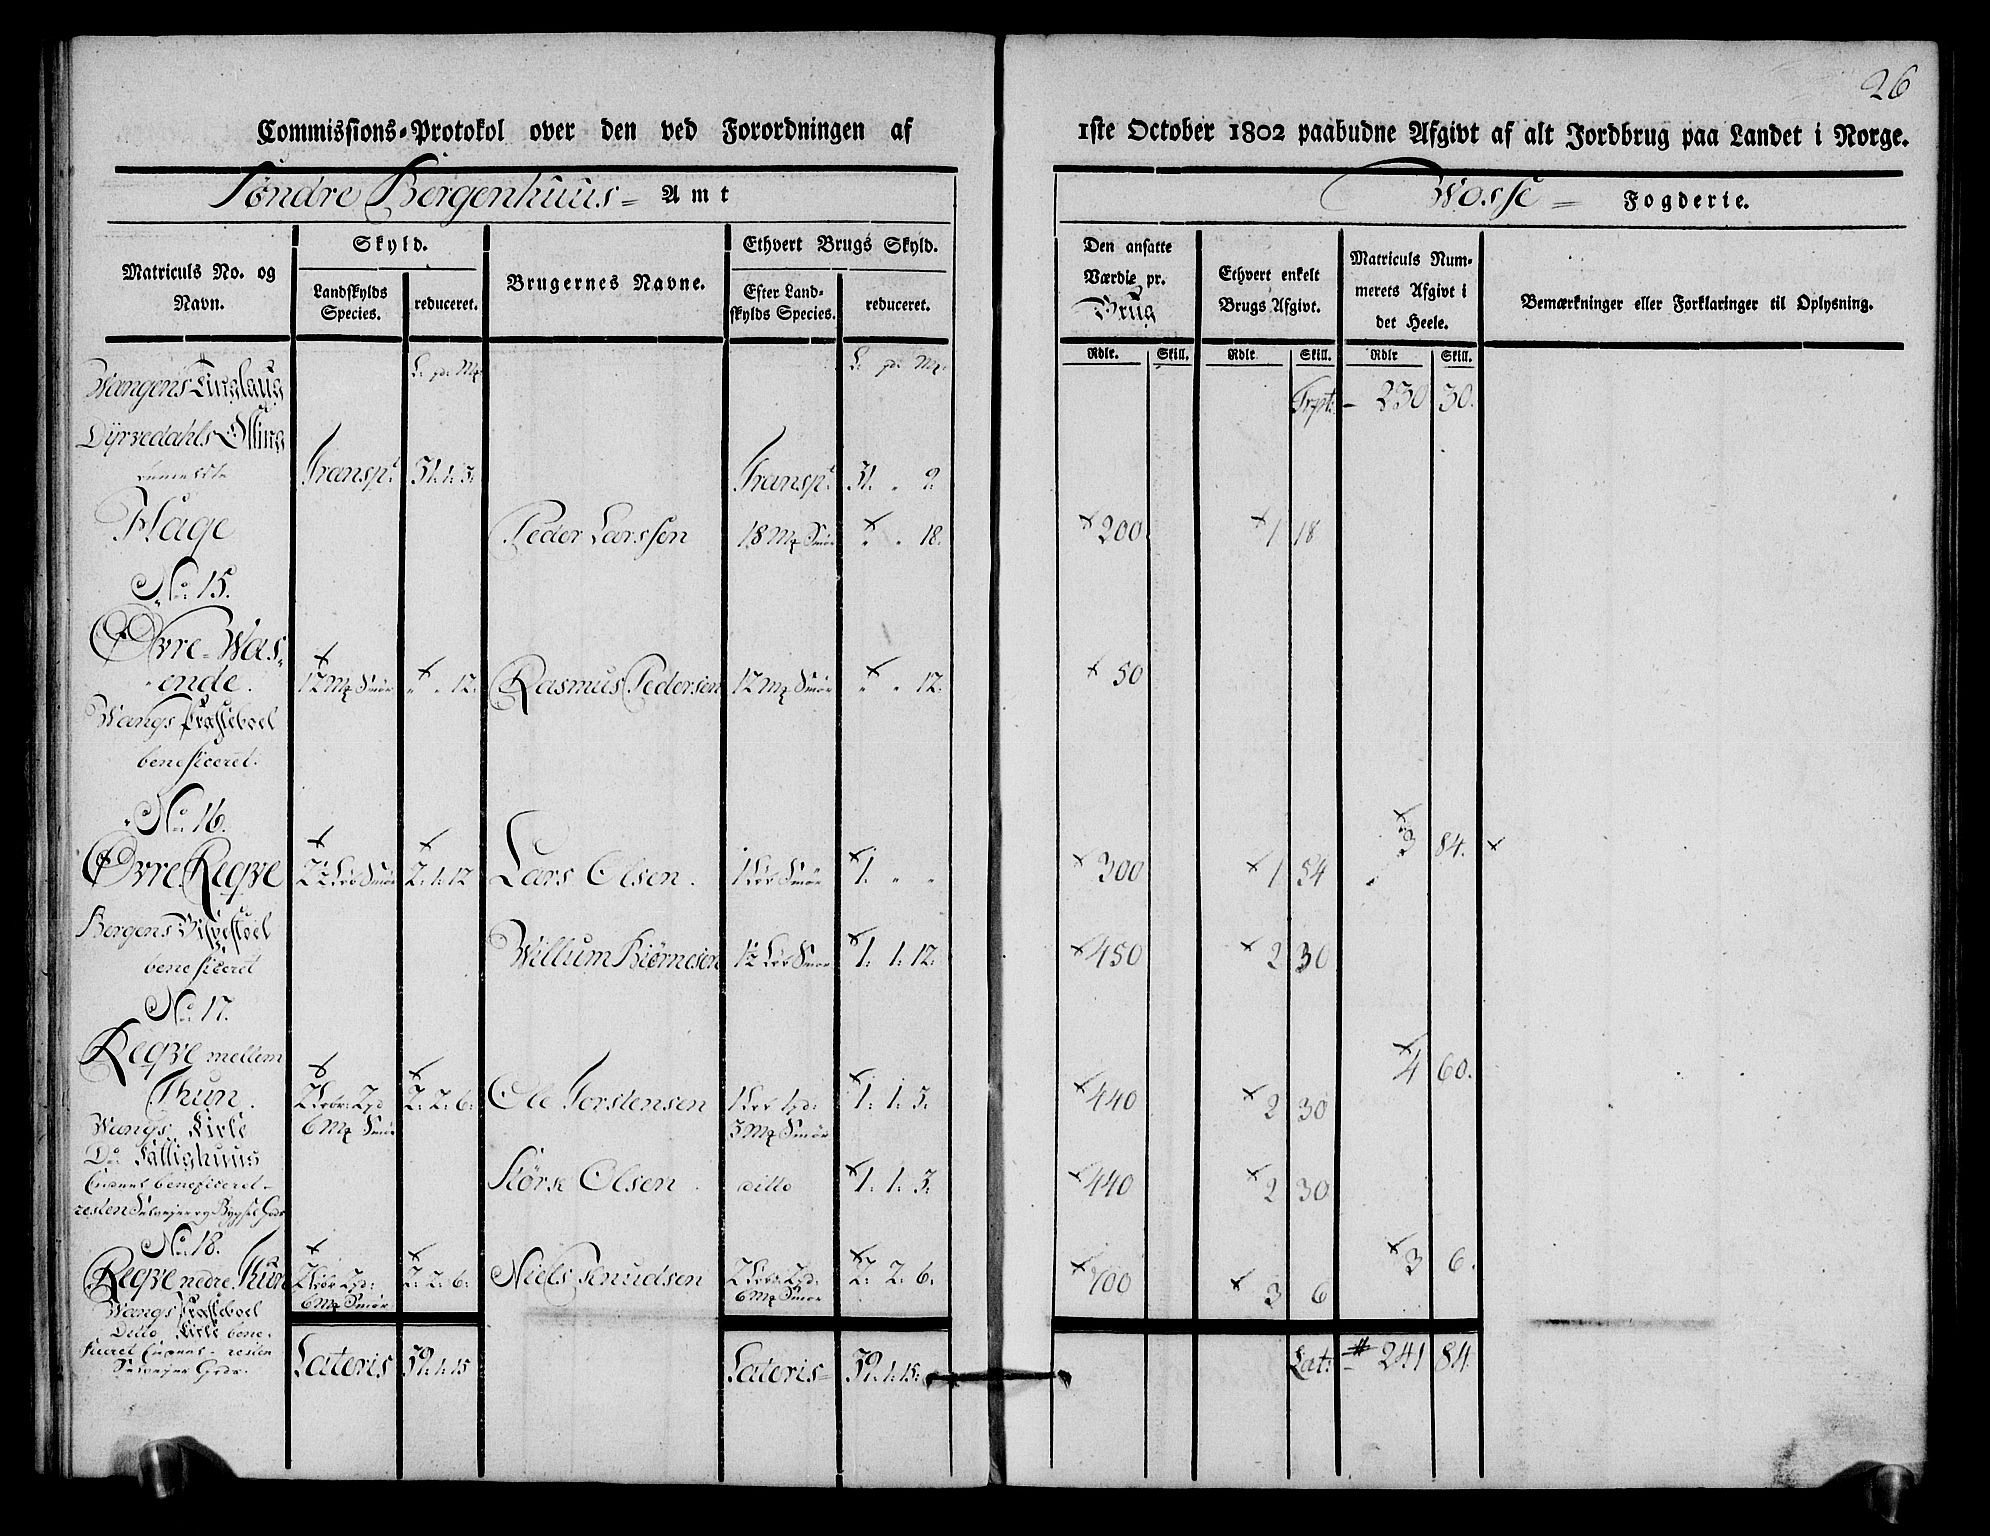 26
Commissions-Protokol over den ved Forordningen af 1ste October 1802 paabudne Afgivt af alt Jordbrug paa Landet i Norge.
Søndre Bergenhuus = Amt
Wosse = Fogderie.
Matriculs No. og Navn.
Skyld.
Landskylds Species.
reduceret.
Brugernes Navne.
Ethvert Brugs Skyld.
Efter Landskylds Species.
reduceret.
Den ansatte Værdie pr. Brug
Ethvert enkelt Brugs Afgivt.
Matriculs Nummerets Afgivt i det Heele.
Bemærkninger eller Forklaringer til Oplysning.
Rdlr. Skill. Rdlr. Skill. Rdlr Skill.
L: pd: Mk: L: pd: Mk:
Wangens Tinglaug Trpt: - 230 30.
Dyrvedahls Otting
Transpt: 31: 1: 3: Transpt: 31: " 9:
Flage Peder Larssen 18 Mk Smør " " 18: 200 1 18
No: 15.
Øvre-Was-
ende. 12 Mk Smør " " 12: Rasmus Pedersen 12 Mk Smør " " 12: 50
Wangs Præsteboel
beneficeret.
No: 16. 3 84.
Øvre Reqve 2½ Løb Smør 2: 1: 12 Lars Olsen. 1 Løb Smør 1: " " 300 1 54
Bergens Bispestoel
beneficeret Willum Biørnesen 1½ Løb Smør 1: 1: 12: 450 2 30
No: 17.
Reqve mellem 4 60.
Thun. 2 Løber 2 pd 6 Mk Smør 2: 2: 6: Ole Torstensen 1 Løb 1 pd: 3 Mk Smør 1: 1: 3: 440 2 30
Wangs Kirke
Do: Fattighuus
beneficeret - Størse Olsen. ditto 1: 1: 3: 440 2 30
resten Selvejer og Bygsel Gods
No: 18. 3 6.
Reqve nedre Thun 2 Løbr 2 pd: 6 Mk Smør 2: 2: 6: Niels Knudsen 2 Løbr: 2 pd: 6 Mk Smør 2: 2: 6: 700 3 6
Wangs Præsteboel
Ditto Kirke bene-
ficeret - resten
Selvejer Gods.
Lateris 39: 1: 15 Lateris = 39: 1: 15: Lat: 241 84.